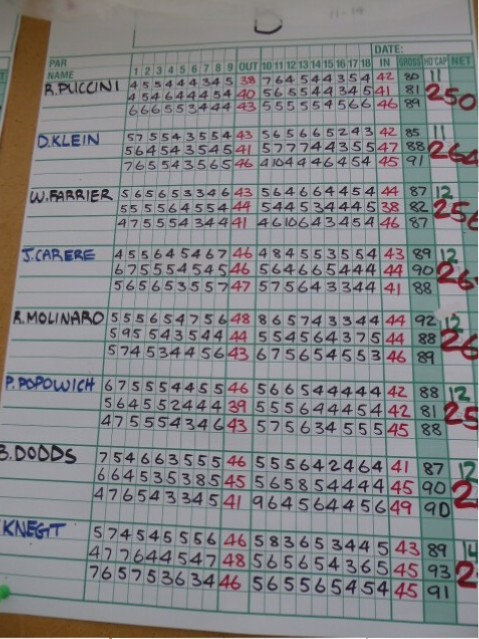 DATE:
PAR
NAME 1 2 3 4 5 6 7 8 9 OUT 10 11 12 13 14 15 16 17 18 IN GROSS HD CAP NET
R.PUCCINI 4 5 5 4 4 4 3 4 5 38 7 6 4 5 4 4 3 5 4 42 80 11
4 5 4 6 4 4 4 5 4 40 5 6 5 5 4 4 3 4 5 41 81 250
6 6 6 5 5 3 4 4 4 43 5 5 5 5 5 4 5 6 6 46 89
D.KLEIN 5 7 5 5 4 3 5 5 4 43 5 6 5 6 6 5 2 4 3 42 85 11
5 6 4 5 4 3 5 4 5 41 5 7 7 7 4 4 3 5 5 47 88 264
7 6 5 5 4 3 5 6 5 46 4 10 4 4 4 6 4 5 4 45 91
W.FARRIER 5 6 5 6 5 3 3 4 6 43 5 6 4 6 6 4 4 5 4 44 87 12
5 5 5 5 6 4 5 5 4 44 5 4 4 5 3 4 4 4 5 38 82 256
4 7 5 5 5 4 3 4 4 41 4 6 10 6 4 3 4 5 4 46 87
J.CARERE 4 5 5 6 4 5 4 6 7 46 4 8 4 5 5 3 5 5 4 43 89 12
6 7 5 5 5 4 5 4 5 46 5 6 4 6 6 5 4 4 4 44 90 26
5 6 5 6 5 3 5 5 7 47 5 7 5 6 4 3 3 4 4 41 88
R.MOLINARO 5 5 5 6 5 4 7 5 6 48 8 6 5 7 4 3 3 4 4 44 92 12
5 9 5 5 4 3 5 4 4 44 5 5 4 5 6 4 3 7 5 44 88 26
5 7 4 5 3 4 4 5 6 43 6 7 5 6 5 4 5 5 3 46 89
P.POPOWICH 6 7 5 5 5 4 4 5 5 46 5 6 6 5 4 4 4 4 4 42 88 12
5 6 4 5 5 2 4 4 4 39 5 5 5 6 4 4 4 5 4 42 81 25
4 7 5 5 5 4 3 4 6 43 5 7 5 6 3 4 5 5 5 45 88
B.DODDS 7 5 4 6 6 3 5 5 5 46 5 5 5 6 4 2 4 6 4 41 87 12
6 6 4 5 3 5 3 8 5 45 5 6 5 8 5 4 4 4 4 45 90 2
4 7 6 5 4 3 3 4 5 41 9 6 4 5 6 4 4 5 6 49 90
KNEGT 5 7 4 5 4 5 5 5 6 46 5 8 3 6 5 3 4 4 5 43 89 14
4 7 7 6 4 4 5 4 7 48 5 6 5 6 5 4 3 6 5 45 93 2
7 6 5 7 5 3 6 3 4 46 5 6 5 5 6 5 4 5 4 45 91